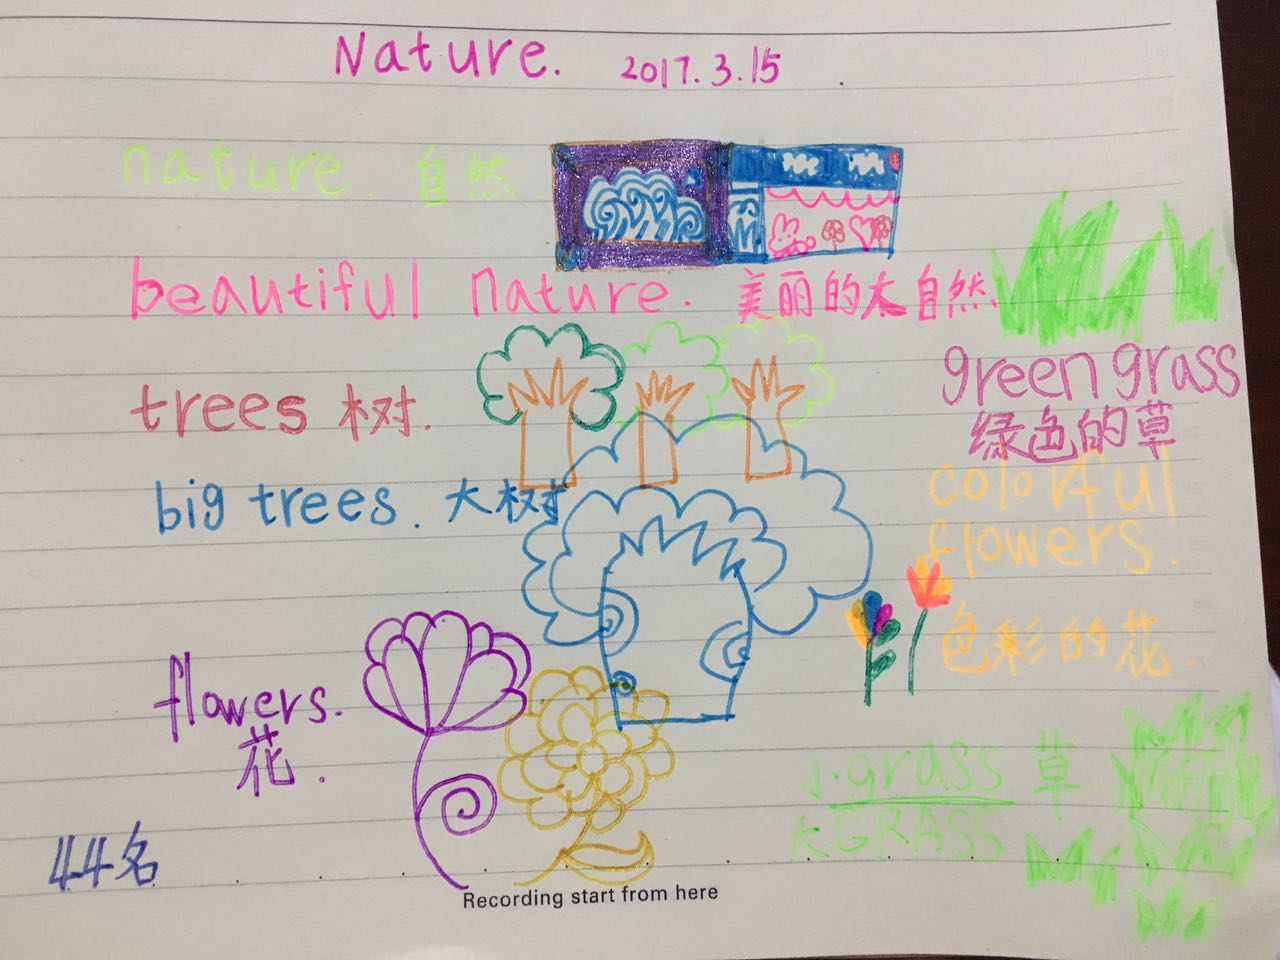 Nature. 2017.3.15
nature. 自然.
beautiful nature. 美丽的大自然.
trees 树.
green grass
绿色的草
big trees. 大树
colorful
flowers.
色彩的花.
flowers.
花.
小.grass 草
大GRASS
44名
Recording start from here